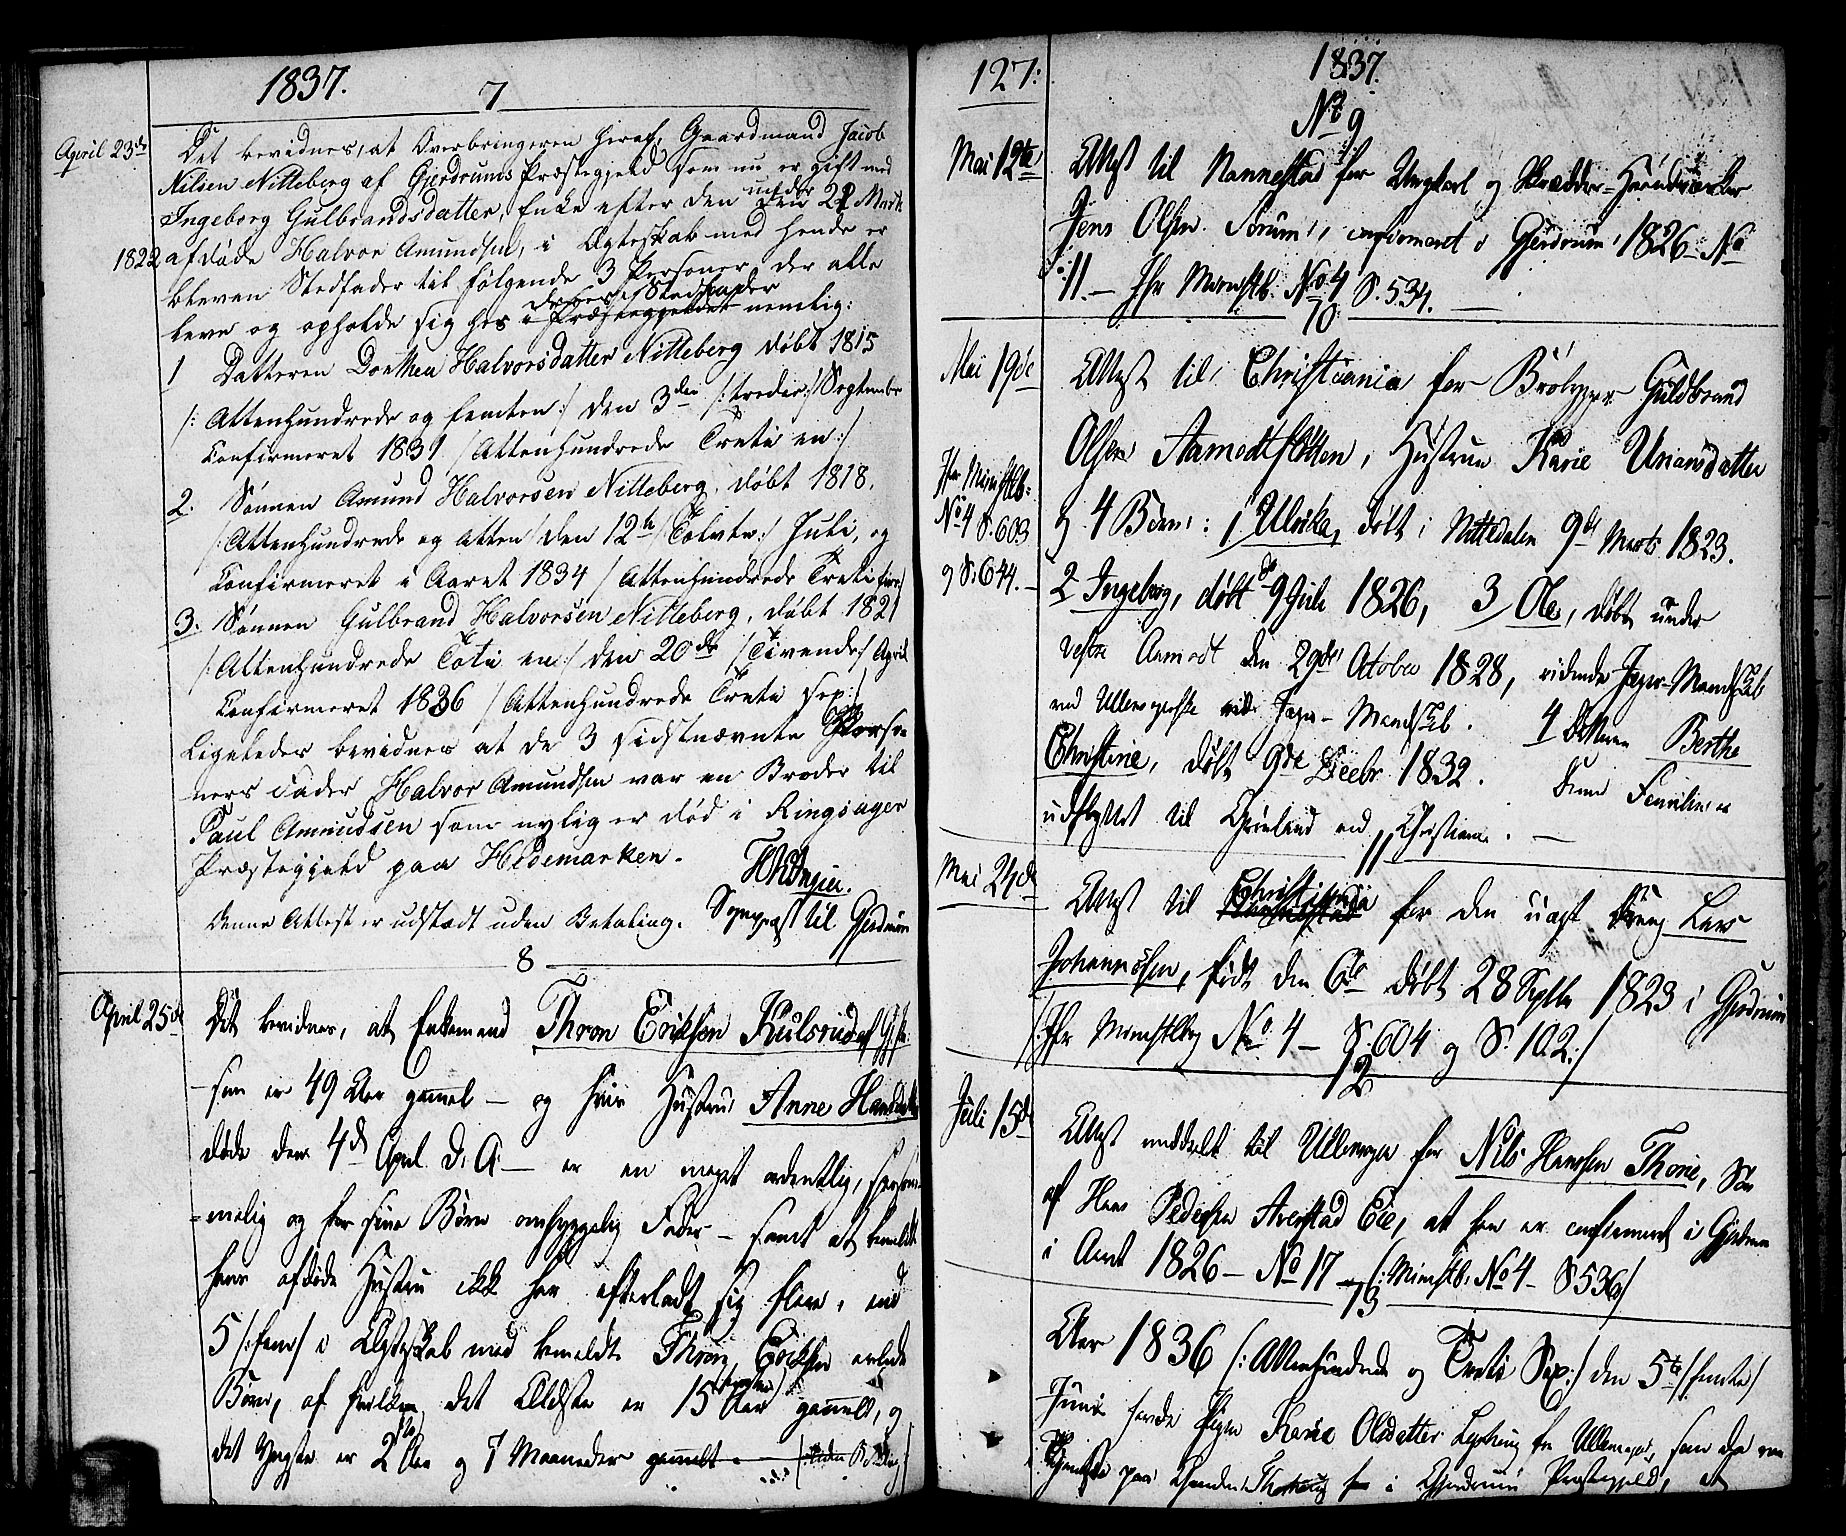 1837.
7
April 23de
Det bevidnes, at Overbringeren heraf, Gaardmand Jacob
Nilsen Nitteberg af Gjerdrums Præstegjeld som nu er gift med
Ingeborg Gulbrandsdatter, Enke efter den den 22 Marts
1822 afdøde Halvor Amundsen, i Ægteskab med hende er
bleven Stedfader til følgende 3 Personer, der alle
leve og opholde sig hos deres Stedfader i Præstegjeldet nemlig:
1 Datteren Dorthea Halvorsdatter Nitteberg døbt 1815
/: Attenhundrede og femten :/ den 3die /: tredie :/ September
Confirmeret 1831 / Attenhundrede Treti en :/
2. Sønnen Amund Halvorsen Nitteberg, døbt 1818.
/: Attenhundrede og atten / den 12te / Tolvte :/ Juli, og
Confirmeret i Aaret 1834 / Attenhundrede Treti fire /
3. Sønnen Gulbrand Halvorsen Nitteberg, døbt 1821
/: Attenhundrede Toti en :/ den 20de / Tivende / April
Confirmeret 1836 / Attenhundrede Treti sex :/
Ligeledes bevidnes at de 3 sidstnævnte Perso-
ners Fader Halvor Amundsen var en Broder til
Paul Amundsen som nylig er død i Ringsager
Præstegjeld paa Hedemarken.
Denne Attest er udstædt uden Betaling. Sognepræst til Gjerdrum
8
April 25de
Det bevidnes, at Enkemand Thron Eriksen Kulsrud af Gj.
som er 49 Aar gammel – og hvis Hustru Anne
døde den 4de April d. A. – er en meget ordentlig,
melig og for sine Børn omhyggelig Fader – samt at bemeldte
hans afdøde Hustru ikke har efterladt sig flere, end
5 /: fem / i Ægteskab med bemeldte Thron Eriksen avlede
Børn, af hvilke det Ældste er 15 /femten/ Aar gammelt, og
det Yngste er 2 /to/ Aar og 7 Maaneder gammelt. – (Uden Betaling)
127:
1837.
No 9
Mai 12te
Attest til Nannestad for Ungkarl og Skrædder-Haandværker
Jens Olsen Sørum, confirmeret i Gjerdrum 1826 No
11. – Jfr Ministb. No 4 S. 534.
10.
Mai 19de
Attest til Christiania for Brøbygger Guldbrand
Olsen Aamodtflotten, Hustrue Karie
Jfr Ministb:
No 4 S. 603
og S. 644. –
og 4 Børn: 1, Ulrika, døbt i Nittedalen 9de Marts 1823.
2 Ingeborg, døbt 9de Juli 1826, 3 Ole, døbt under
Vestre Aamodt den 29de October 1828,
ved Ullensagerske rid. Jæger-Mandskab. 4 Datteren Berthe
Christine, døbt 9de Decbr 1832. Denne Familie er
udflyttet til Grønland ved Christiania. –
11
Mai 24de
Attest til Christiania for den ugift Dreng Lars
Johannesen, født den 6te døbt 28 Septbr 1823 i Gjerdrum
/: Jfr Ministbog No 4 – S. 604 og S. 102 :/
12
Juli 15de
Attest meddelt til Ullensager for Nils Hansen Thorie, Søn
af Hans Pedersen Averstad Eie, at han er confirmeret i Gjerdrum
i Aaret 1826 – No 17 – /: Ministb. No 4 – S 536 /
13
Aar 1836 /: Attenhundrede og Treti Sex :/ den 5te / femte /
Junii havde Pigen Karie Olsdatter fra Ullensager, som da var
Tjeneste paa i Gjerdrum Præstegjeld, at